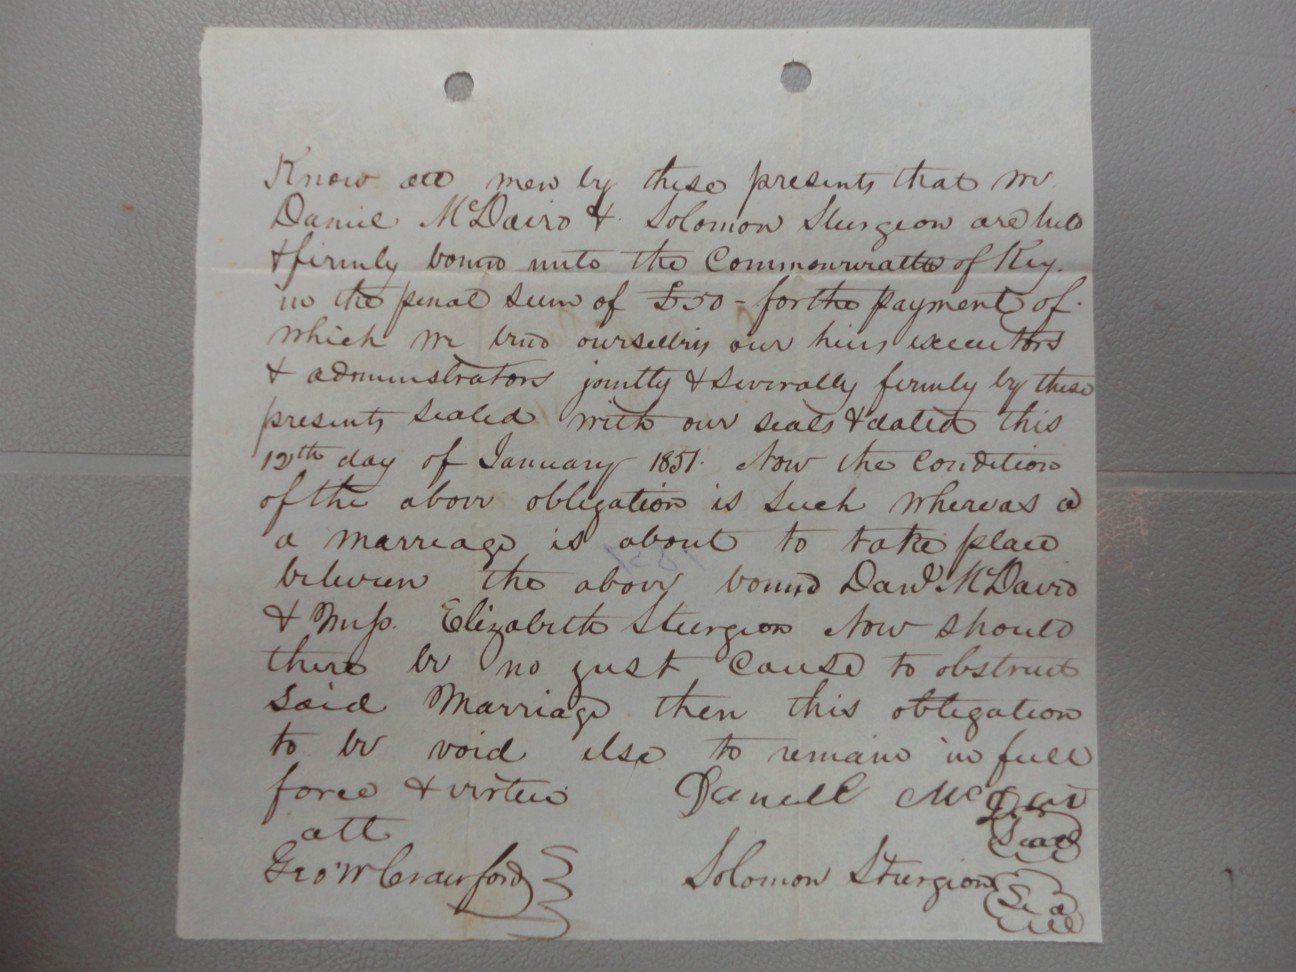 Know all men by these presents that we
Daniel McDavid & Solomon Sturgeon are held
& firmly bound unto the Commonwealth of Key.
in the penal sum of £50 - for the payment of
which we bind ourselves our heirs executors
& administrators jointly & severally firmly by these
presents sealed with our seals & dated this
12th day of January 1851. Now the condition
of the above obligation is such whereas a
a marriage is about to take place
between the above bound Danl McDavid
& Miss Elizabeth Sturgeon Now should
there be no just cause to obstruct
said Marriage then this obligation
to be void else to remain in full
force & virtue Daniell McDavid
att Seal
Geo W Crawford Solomon Sturgeon Seal